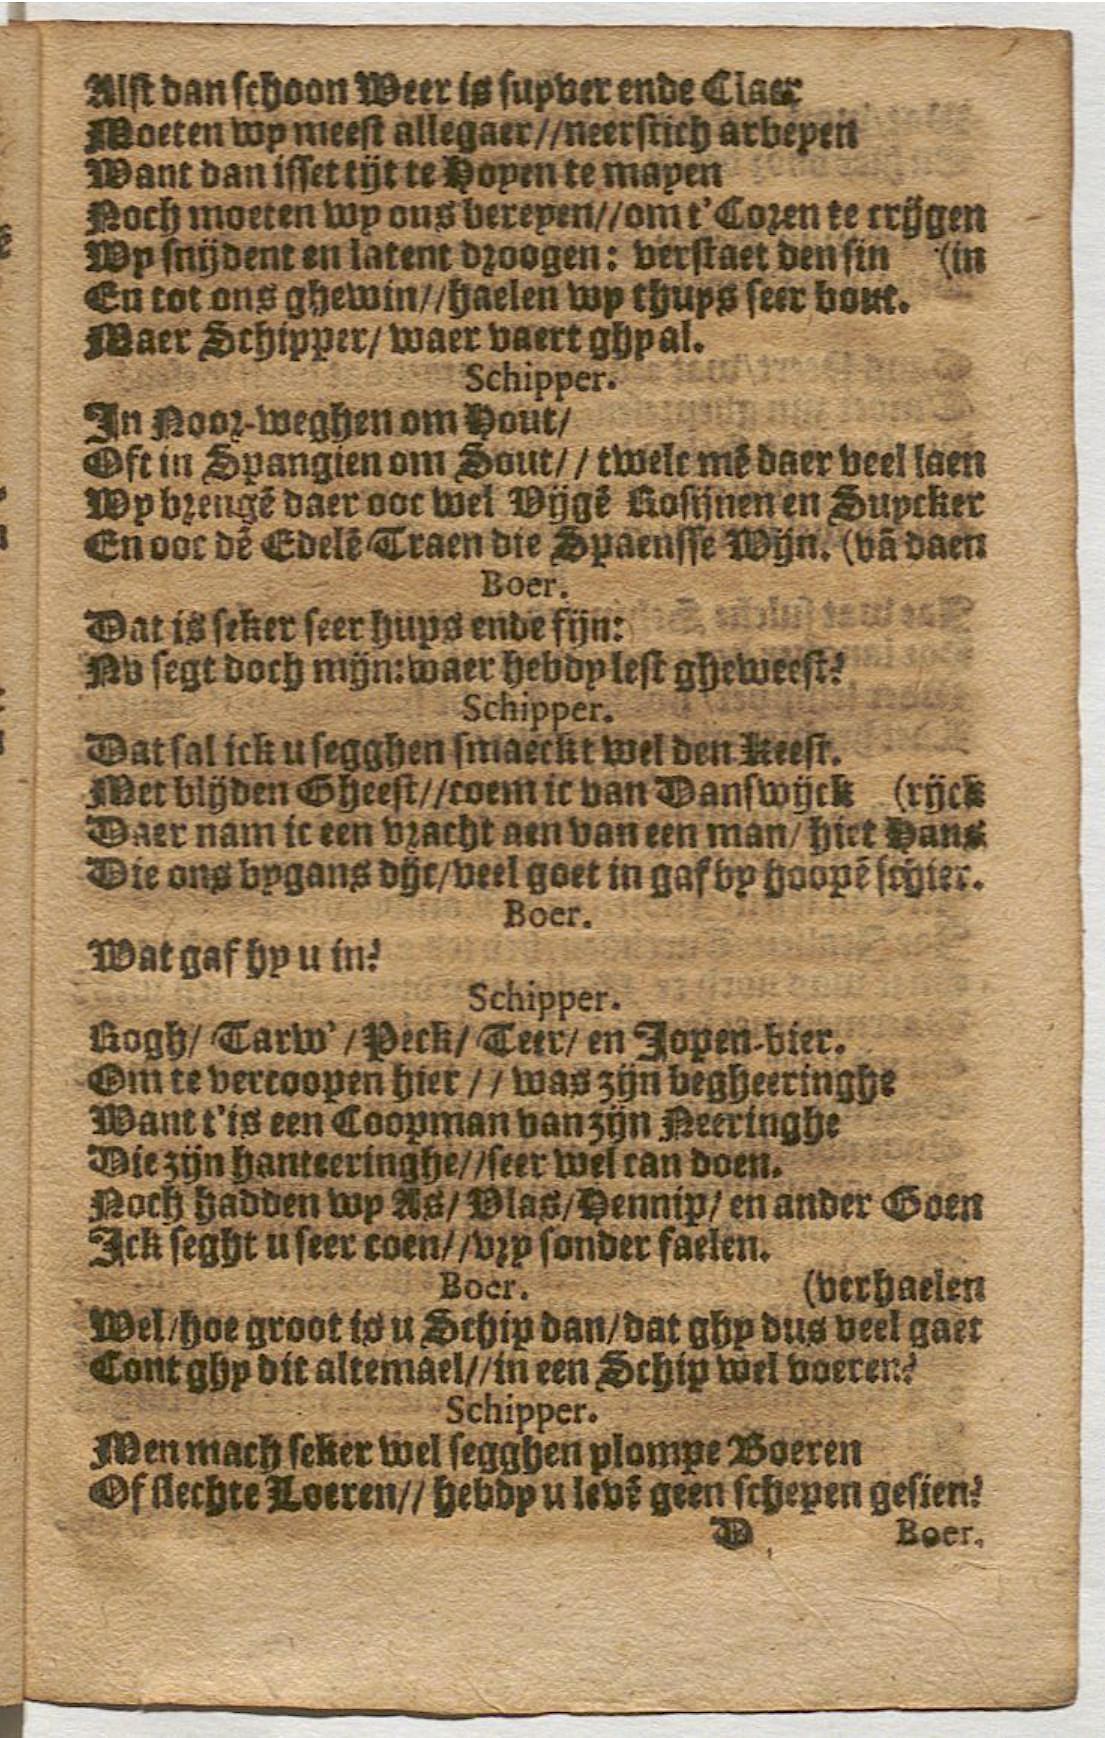 Alst dan schoon Weer is suyver ende Claer
Moeten wy meest allegaer//neerstich arbeyen
Want dan isset tijt te Hoyen te mayen
Noch moeten wy ons bereyen//om t'Coren te crijgen
Wy snijdent en latent droogen: verstaet den sin (in
En tot ons ghewin//haelen wy thuys seer bout.
Maer Schipper/ waer vaert ghy al.
Schipper.
In Noor-weghen om Hout/
Oft in Spangien om Sout// twelc mē daer veel laen
Wy brengē daer ooc wel Vijgē Rosijnen en Suycker
En ooc dē Edelē Traen die Spaensse Wijn. (vā daen
Boer.
Dat is seker seer hups ende fijn:
Nv segt doch mijn: waer hebdy lest gheweest?
Schipper.
Dat sal ick u segghen smaeckt wel den keest.
Met blijden Gheest//coem ic van Danswijck (rijck
Daer nam ic een vracht aen van een man/ hiet Hans
Die ons bygans dijc/veel goet in gaf by hoopē schier.
Boer.
Wat gaf hy u in?
Schipper.
Rogh/ Tarw' /Peck/ Teer/ en Jopen-bier.
Om te vercoopen hier // was zijn begheeringhe
Want t'is een Coopman van zijn Neeringhe
Die zijn hanteeringhe//seer wel can doen.
Noch hadden wy As/ Vlas/Hennip/ en ander Goen
Ick seght u seer coen//vry sonder faelen.
Boer. (verhaelen
Wel/hoe groot is u Schip dan/dat ghy dus veel gaet
Cont ghy dit altemael//in een Schip wel voeren?
Schipper.
Men mach seker wel segghen plompe Boeren
Of slechte Loeren// hebdy u levē geen schepen gesien?
D Boer.